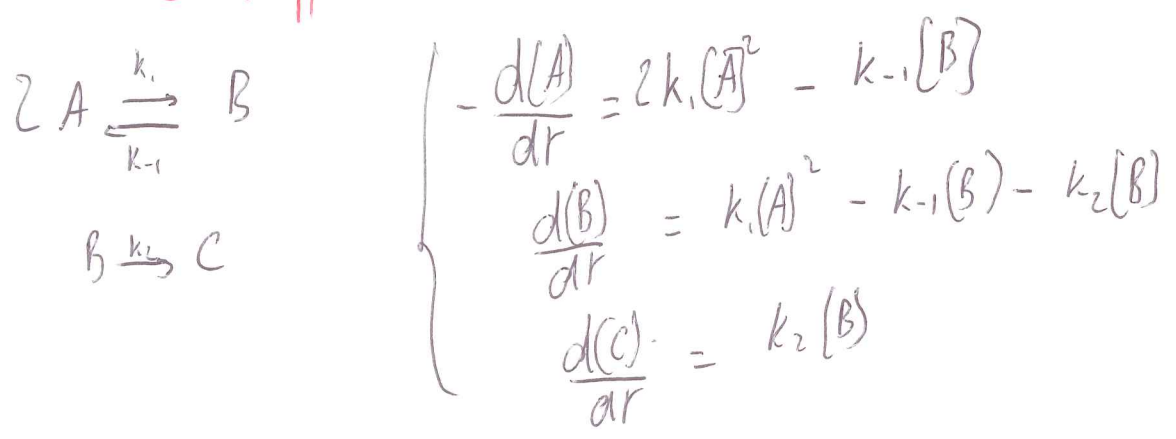 2A ⇌ B
k₁
k₋₁
B →k₂ C
- d[A]/dt = 2k₁[A]² - k₋₁[B]
d[B]/dt = k₁[A]² - k₋₁[B] - k₂[B]
d[C]/dt = k₂[B]